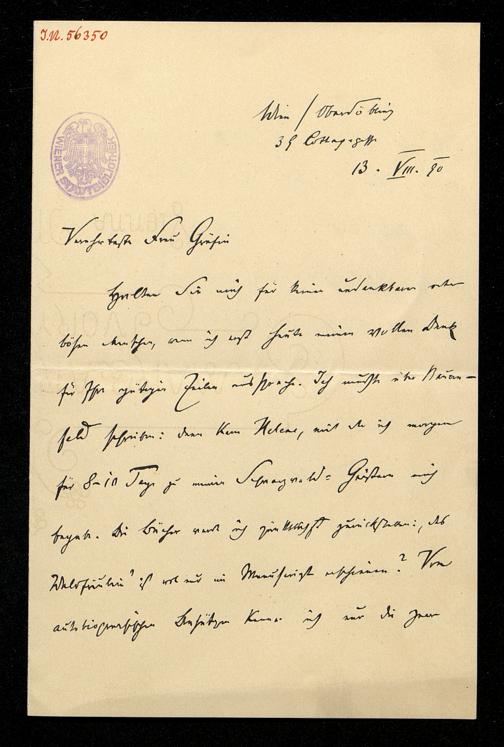 J.N. 56350
WIENER STADTBIBLIOTHEK
Wien / Oberdöbling
39 Cottageg.
13. VIII. 90
Verehrteste Frau Gräfin
Halten Sie mich für keinen undankbaren oder
bösen Menschen, wenn ich erst heute meinen vollen Dank
für Ihre gütigen Zeilen ausspreche. Ich musste über
schreiben: dann kam Helene, mit der ich morgen
für 8–10 Tage zu meinen Schwarzwald-Geistern mich
begebe. Die Bücher werde ich zurückstellen: „das
Waldfräulein“ ist wol nur im Manuscript erschienen? Von
autobiographischen Aufsätzen kenne ich nur die